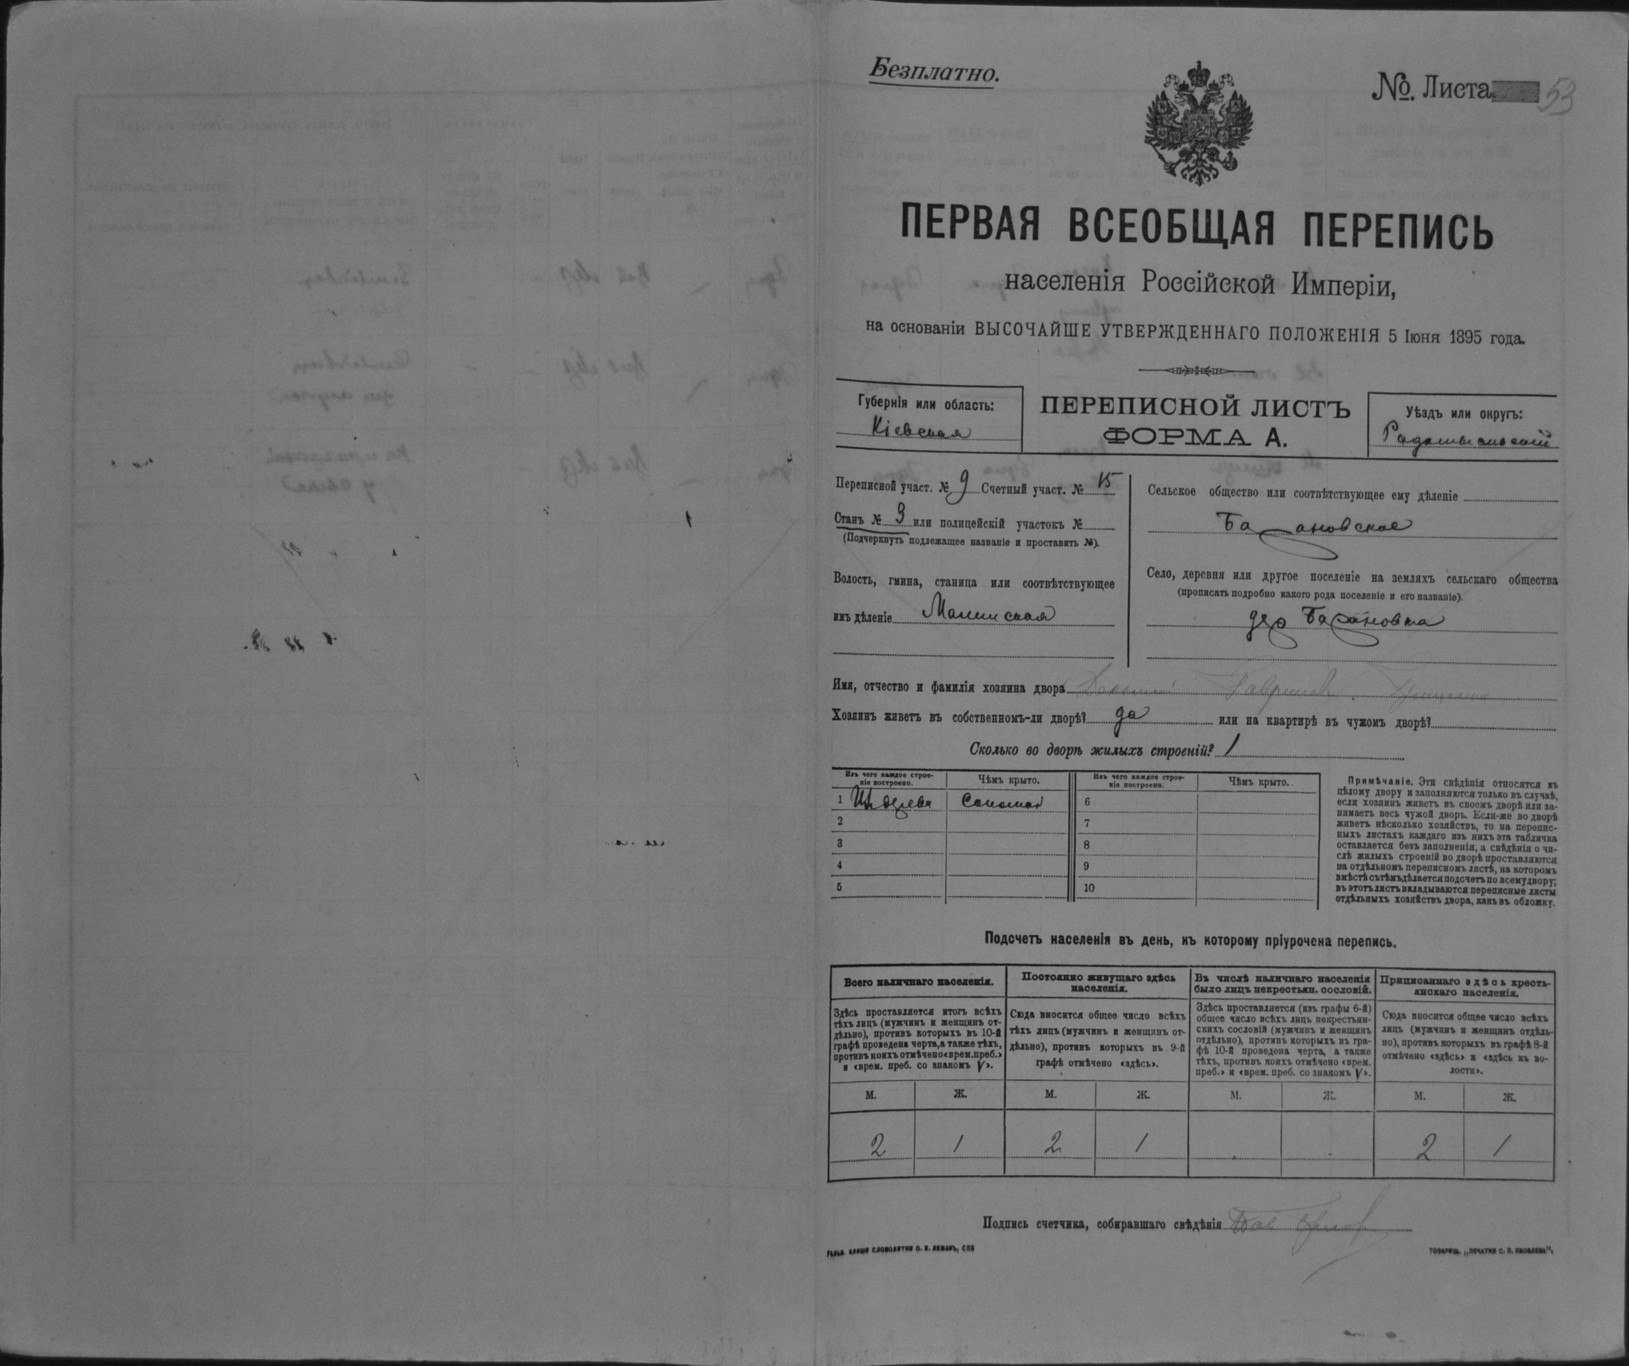 Безплатно.
№ Листа 53
ПЕРВАЯ ВСЕОБЩАЯ ПЕРЕПИСЬ
населенія Россійской Имперіи,
на основаніи ВЫСОЧАЙШЕ УТВЕРЖДЕННАГО ПОЛОЖЕНІЯ 5 Іюня 1895 года.
Губернія или область:
Кіевская
ПЕРЕПИСНОЙ ЛИСТЪ
ФОРМА А.
Уѣздъ или округъ:
Радомысльскій
Переписной участ. № 9 Счетный участ. № 15
Станъ № 3 или полицейскій участокъ №
(Подчеркнуть подлежащее названіе и проставить №).
Волость, гмина, станица или соотвѣтствующее
имъ дѣленіе Малинская
Сельское общество или соотвѣтствующее ему дѣленіе
Барановское
Село, деревня или другое поселеніе на земляхъ сельскаго общества
(прописать подробно какого рода поселеніе и его названіе).
дер Барановка
Имя, отчество и фамилія хозяина двора
Хозяинъ живетъ въ собственномъ-ли дворѣ? да или на квартирѣ въ чужомъ дворѣ?
Сколько во дворѣ жилыхъ строеній? 1
Изъ чего каждое строе-
ніе построено.
Чѣмъ крыто.
Изъ чего каждое строе-
ніе построено.
Чѣмъ крыто.
1 Изъ дерева Соломой
6
2
7
3
8
4
9
5
10
Примѣчаніе. Эти свѣдѣнія относятся къ
цѣлому двору и заполняются только въ случаѣ,
если хозяинъ живетъ въ своемъ дворѣ или за-
нимаетъ весь чужой дворъ. Если-же во дворѣ
живетъ нѣсколько хозяйствъ, то на перепис-
ныхъ листахъ каждаго изъ нихъ эта табличка
оставляется безъ заполненія, а свѣдѣнія о чи-
слѣ жилыхъ строеній во дворѣ проставляются
на отдѣльномъ переписномъ листѣ, на которомъ
вмѣстѣ съ тѣмъ дѣлается подсчетъ по всему двору;
въ этотъ листъ вкладываются переписные листы
отдѣльныхъ хозяйствъ двора, какъ въ обложку.
Подсчетъ населенія въ день, къ которому пріурочена перепись.
Всего наличнаго населенія.
Здѣсь проставляется итогъ всѣхъ
тѣхъ лицъ (мужчинъ и женщинъ от-
дѣльно), противъ которыхъ въ 10-й
графѣ проведена черта, а также тѣхъ,
противъ коихъ отмѣчено «врем. преб.»
и «врем. преб. со знакомъ V».
Постоянно живущаго здѣсь
населенія.
Сюда вносится общее число всѣхъ
тѣхъ лицъ (мужчинъ и женщинъ от-
дѣльно), противъ которыхъ въ 9-й
графѣ отмѣчено «здѣсь».
Въ числѣ наличнаго населенія
было лицъ некрестьян. сословій.
Здѣсь проставляется (изъ графы 6-й)
общее число всѣхъ лицъ некрестьян-
скихъ сословій (мужчинъ и женщинъ
отдѣльно), противъ которыхъ въ гра-
фѣ 10-й проведена черта, а также
тѣхъ, противъ коихъ отмѣчено «врем.
преб.» и «врем. преб. со знакомъ V».
Приписаннаго здѣсь кресть-
янскаго населенія.
Сюда вносится общее число всѣхъ
лицъ (мужчинъ и женщинъ отдѣль-
но), противъ которыхъ въ графѣ 8-й
отмѣчено «здѣсь» и «здѣсь въ во-
лости».
М. Ж. М. Ж. М. Ж. М. Ж.
2 1 2 1 . . 2 1
Подпись счетчика, собиравшаго свѣдѣнія
ГАЛЬВ. КЛИШЕ СЛОВОЛИТНИ О. И. ЛЕМАНЪ, СПБ
ТОВАРИЩ. „ПЕЧАТНЯ С. П. ЯКОВЛЕВА“.